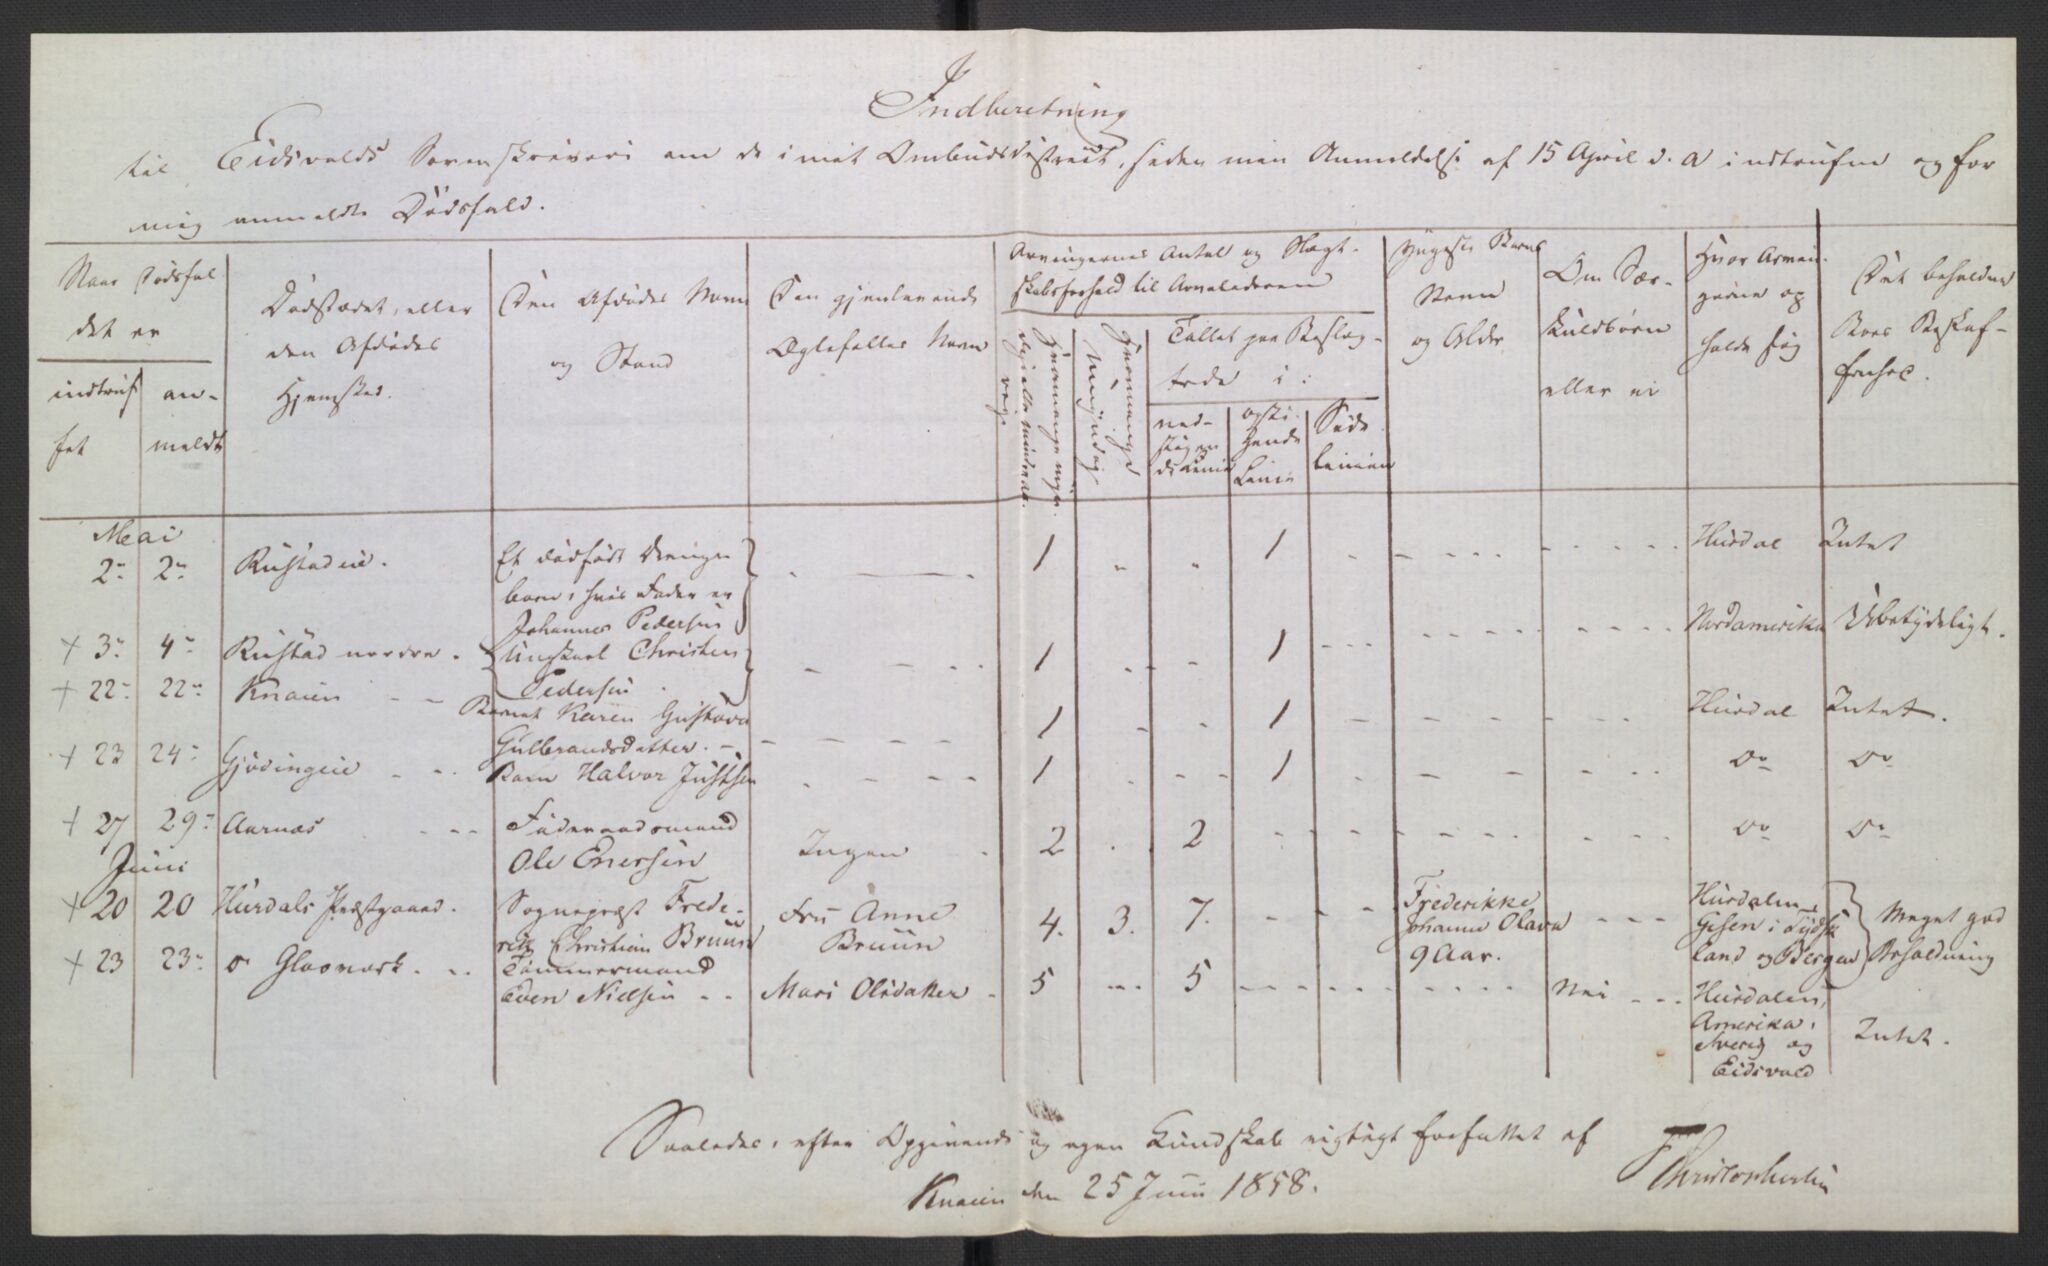 Indberetning
til Eidsvolds Sorenskriveri om de i mit Ombudsdistrict, siden min Anmeldelse af 15 April d. A indtrufne og for
mig anmeldte Dødsfald.
Naar Dødsfal
det er
indtruf
fet
an-
meldt
Dødstedet, eller
den Afdødes
Hjemsted.
Den Afdødes Navn
og Stand
Den gjenlevende
Ægtefælles Navn
Arvingernes Antal og Slægt-
skabsforhold til Arveladeren
Hvormange myn-
dige eller mindreaa-
rige
Hvormange
umyndige
Tallet paa Beslæg-
tede i:
ned-
stigen
de Linie
opsti
gende
Linie
Side
Linien
Yngste Barns
Navn
og Alder
Om Sær-
kuldbørn
eller ei
Hvor Arvin-
gerne op
holde sig
Det beholdne
Boes Beskaf-
fenhed.
Mai
2- 2- Rustadeie. Et dødfødt Drenge
barn, hvis Fader er
Johannes Pedersen
1 " " 1 Hurdal Intet
+ 3- 4- Rustad nordre. Ungkarl Christen
Pedersen
1 1 Nordamerika Ubetydeligt.
+ 22- 22- Knaien Barnet Karen Gustava
Gulbrandsdatter.
1 1 Hurdal Intet.
+ 23 24- Gjødingeie Barn Halvor Justsen
1 1 do do
+ 27 29- Aarnæs Føderaadsmand
Ole Enersen
Ingen 2 2 do do
Juni
+ 20 20 Hurdals Præstgaard. Sognepræst Frede-
rik Christian Bruun
Fru Anne
Bruun
4. 3. 7. Frederikke
Johanne Olava
9 Aar.
Hurdalen
Gisen i Tydsk
land og Bergen
Meget god
Beholdning
+ 23 23- Glasværk. Tømmermand
Even Nielsen
Mari Olsdatter 5 5 Nei Hurdalen,
Amerika,
Sverig og
Eidsvold
Intet.
Saaledes, efter Opgivende og egen Kundskab rigtigt forfattet af
Knaien den 25 Juni 1858.
Christophersen